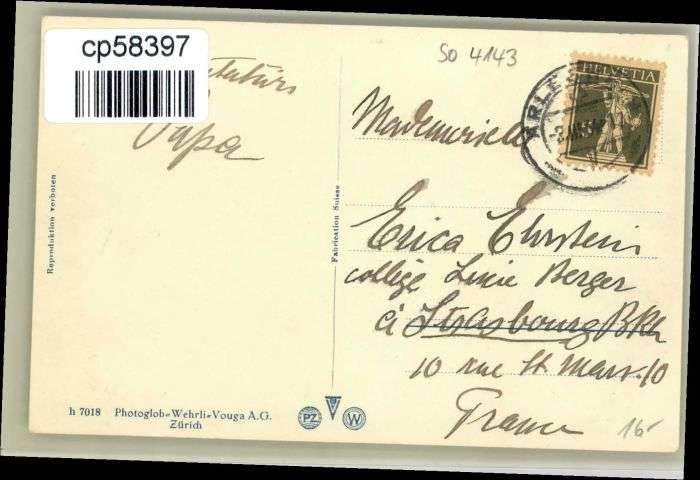 cp58397
So 4143
HELVETIA
ARLES
Papa
Mademoiselle
Erica Ehrstein
collège Lucie Berger
à Strasbourg B.Rh
10 rue St Marc. 10
France
16-
Reproduktion verboten
Fabrication Suisse
h 7018 Photoglob-Wehrli-Vouga A.G.
Zürich
PZ
V
W